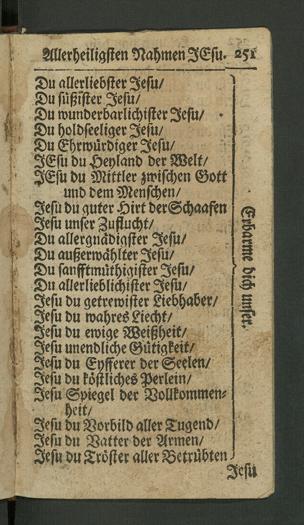 Allerheiligsten Nahmen JEsu. 251
Du allerliebster Jesu/
Du süßister Jesu/
Du wunderbarlichister Jesu/
Du holdseeliger Jesu/
Du Ehrwürdiger Jesu/
JEsu du Heyland der Welt/
JEsu du Mittler zwischen Gott
und dem Menschen/
Jesu du guter Hirt der Schaafen
Jesu unser Zuflucht/
Du allergnädigster Jesu/
Du außerwählter Jesu/
Du sanfftmüthigister Jesu/
Du allerlieblichister Jesu/
Jesu du getrewister Liebhaber/
Jesu du wahres Liecht/
Jesu du ewige Weißheit/
Jesu unendliche Gütigkeit/
Jesu du Eyfferer der Seelen/
Jesu du köstliches Perlein/
Jesu Spiegel der Vollkommen-
heit/
Jesu du Vorbild aller Tugend/
Jesu du Vatter der Armen/
Jesu du Tröster aller Betrübten
Erbarme dich unser.
Jesu